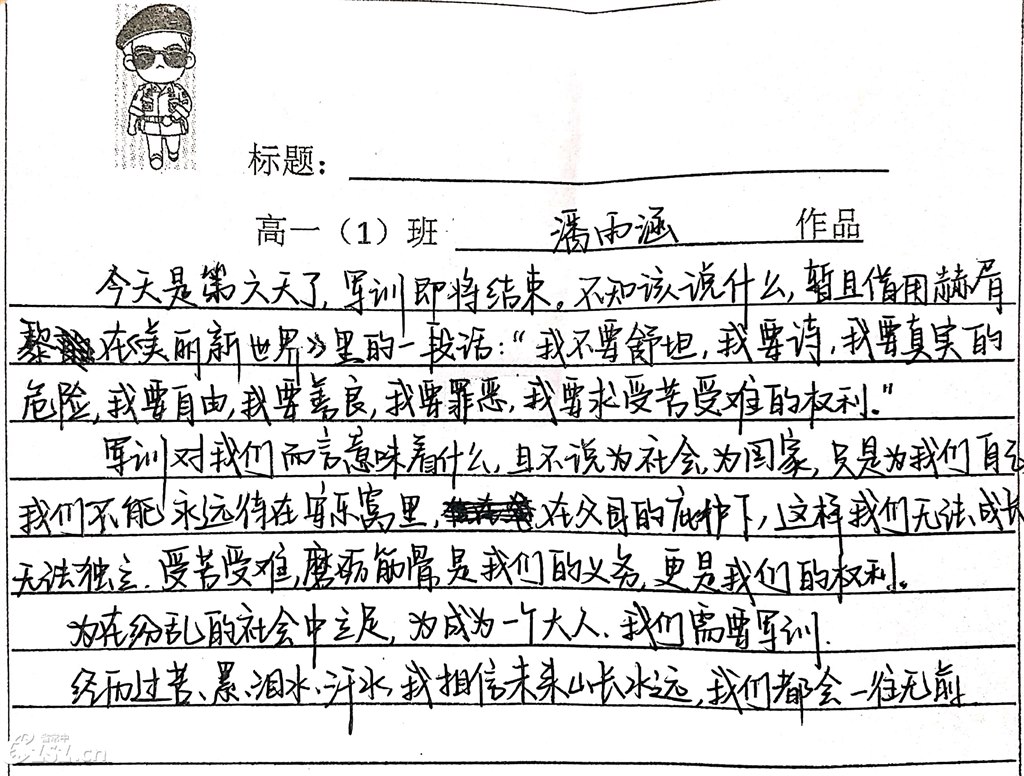 标题：
高一（1）班 潘雨涵 作品
今天是第六天了，军训即将结束。不知该说什么，暂且借用赫胥
黎在《美丽新世界》里的一段话：“我不要舒坦，我要诗，我要真实的
危险，我要自由，我要善良，我要罪恶，我要求受苦受难的权利。”
军训对我们而言意味着什么，且不说为社会，为国家，只是为我们自己
我们不能永远待在安乐窝里，在父母的庇护下，这样我们无法成长
无法独立．受苦受难，磨砺筋骨是我们的义务，更是我们的权利。
为在纷乱的社会中立足，为成为一个大人．我们需要军训．
经历过苦、累、泪水、汗水，我相信未来山长水远，我们都会一往无前